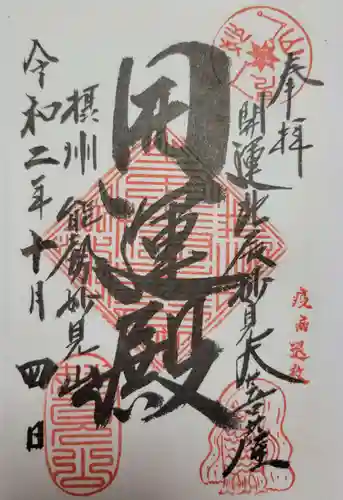 奉拝
開運北辰妙見大菩薩
疫病退散
開運殿
摂州 能勢妙見山
令和二年十月四日